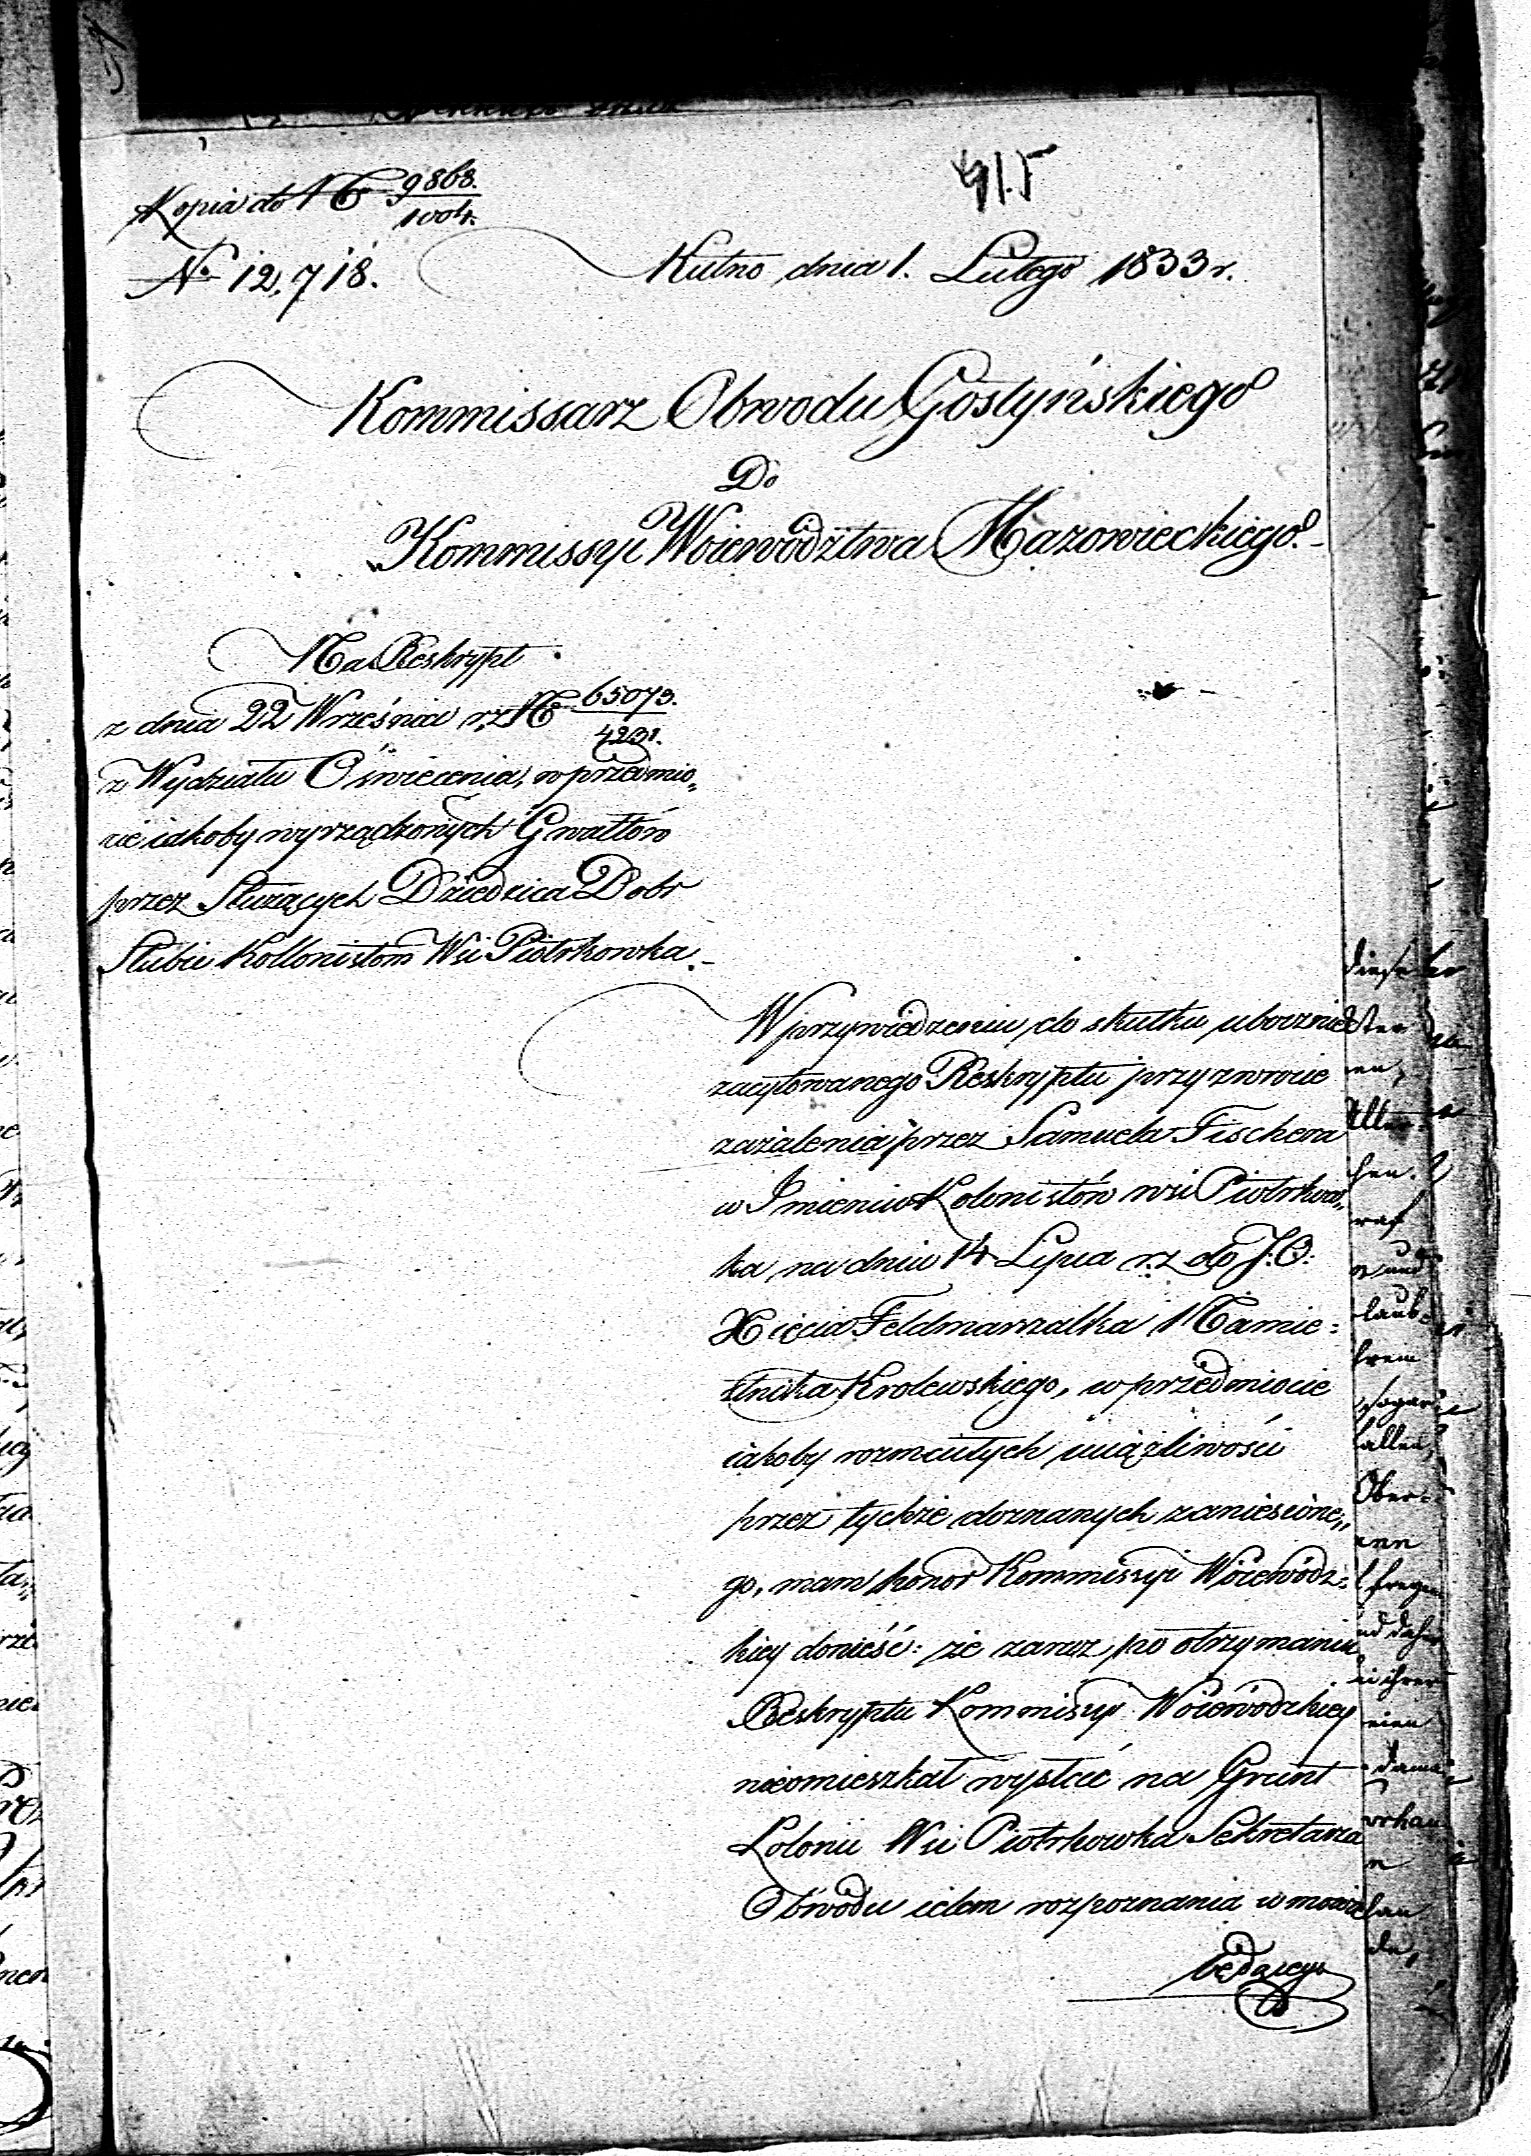 415
Kopia do No 9868.
1004.
No 12,718.
Kutno dnia 1. Lutego 1833 r.
Kommissarz Obwodu Gostyńskiego
Do
Kommissyi Woiewodztwa Mazowieckiego.
Na Reskrypt
z dnia 22 Września r.z. No 65073.
4231.
z Wydziału Oświecenia, w przedmio„
cie iakoby wyrządzonych Gwałtów
przez Służących Dziedzica Dobr
Słubic Kollonistom Wsi Piotrkowka.
W przywiedzeniu do skutku ubocznie
zacytowanego Reskryptu przy zwrocie
zażalenia przez Samuela Fischera
w Imieniu Kolonistów wsi Piotrkow„
ka na dniu 14 Lipca r.z. do J.O.
Xięcia Feldmarszalka Namie=
stnika Krolewskiego, w przedmiocie
iakoby rozmaitych uciążliwości
przez tychże doznanych zaniesione„
go, mam honor Kommissyi Woiewódz=
kiey donieść: że zaraz po otrzymaniu
Reskryptu Kommissyi Woiewodzkiey
nieomieszkał wysłać na Grunt
Kolonii Wsi Piotrkowka Sekretarza
Obwodu celem rozpoznania w mowie
będących